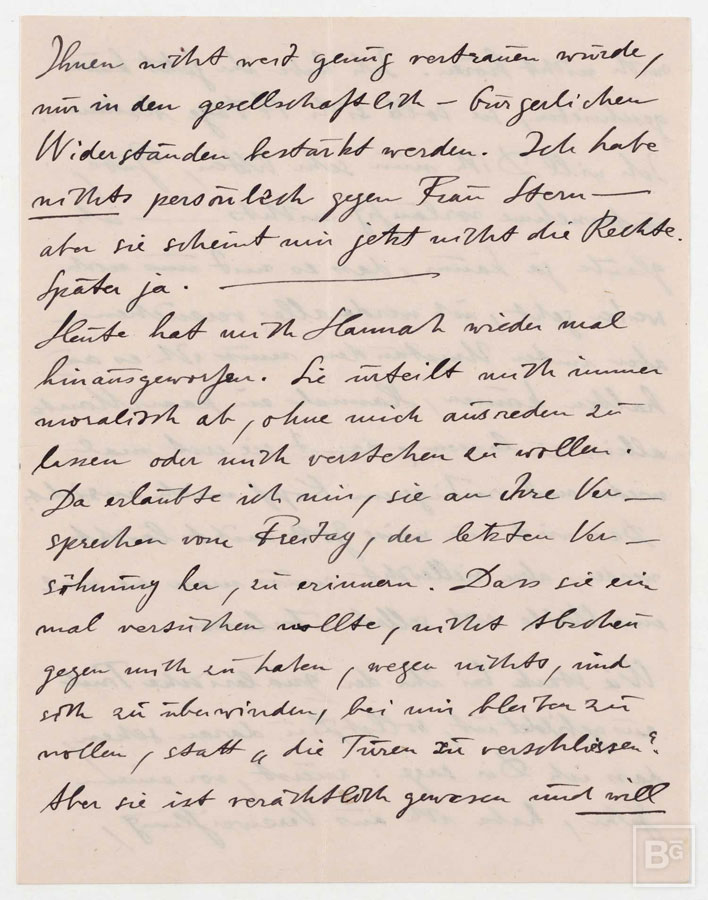 Ihnen nicht weit genug vertrauen würde,
nur in den gesellschaftlich – bürgerlichen
Widerständen bestärkt werden. Ich habe
nichts persönlich gegen Frau Stern —
aber sie scheint mir jetzt nicht die Rechte.
Später ja. —
Heute hat mich Hannah wieder mal
hinausgeworfen. Sie urteilt mich immer
moralisch ab, ohne mich ausreden zu
lassen oder mich verstehen zu wollen.
Da erlaubte ich mir, sie an ihre Ver –
sprechen vom Freitag, der letzten Ver –
söhnung her, zu erinnern. Dass sie ein
mal versuchen wollte, nicht Abscheu
gegen mich zu haben, wegen nichts, und
sich zu überwinden, bei mir bleiben zu
wollen, statt „die Türen zu verschliessen“.
Aber sie ist verächtlich gewesen und will
BG